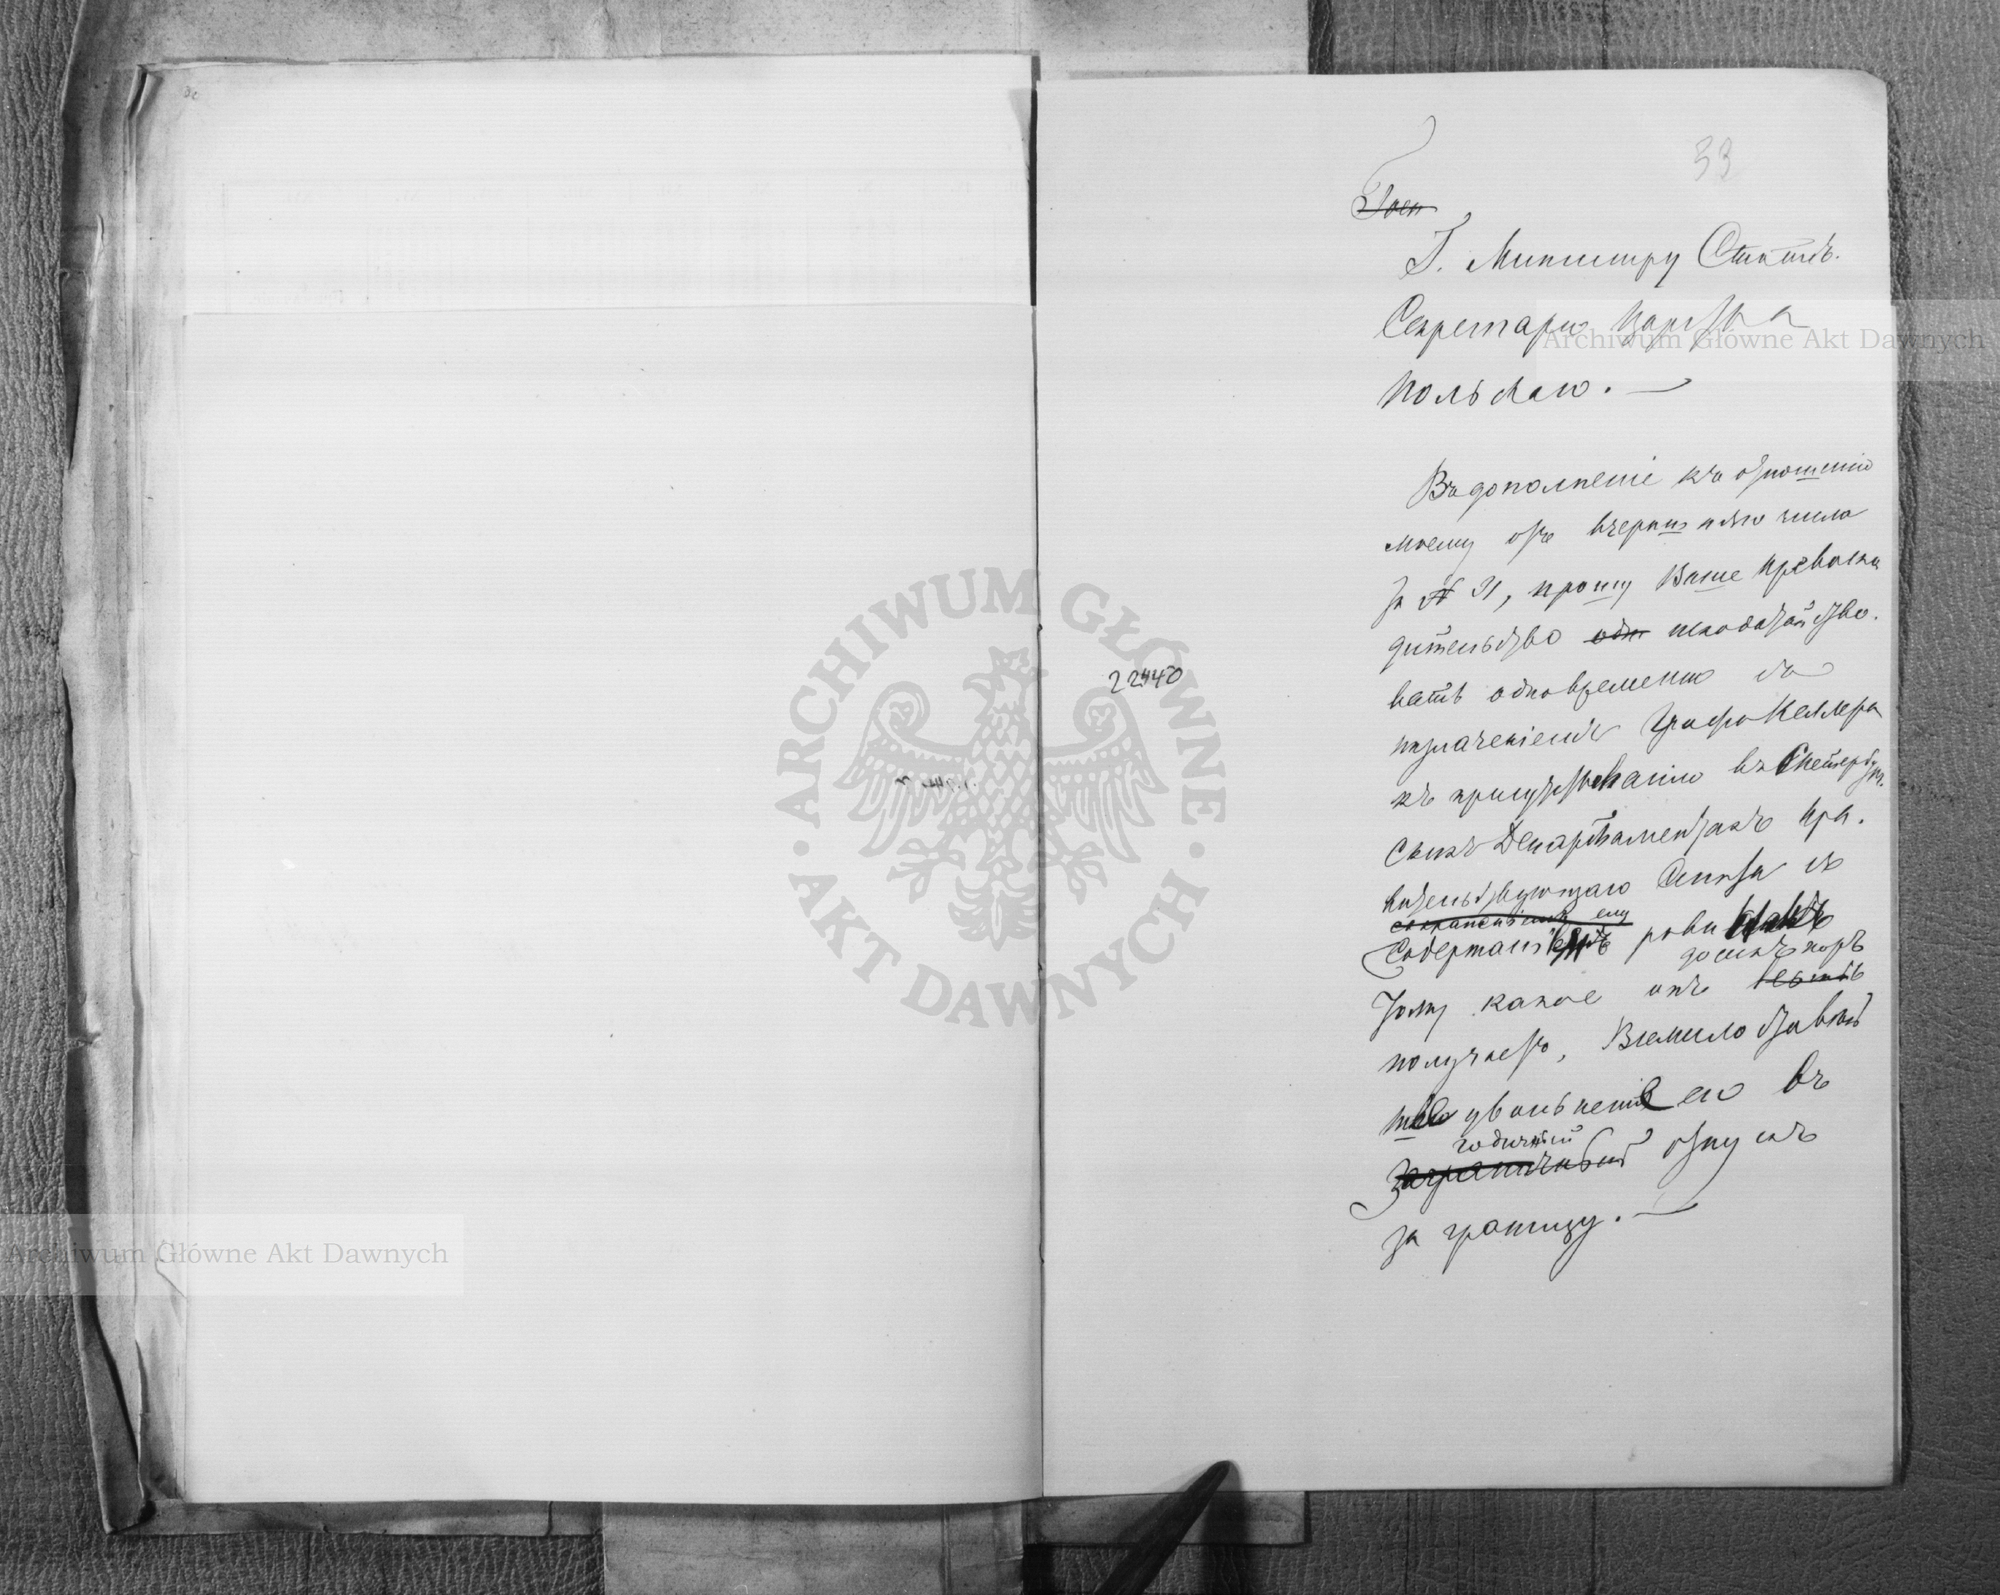 33
Госп
Г. Министру Статсъ-
Секретарю Царства
Польскаго. —
Въ дополненіе къ отношенію
моему отъ вчерашняго числа
за № 21, прошу Ваше Превосхо
дительство одн исходатайство-
вать одновременно съ
назначеніемъ Графа Келлера
къ присутствованію въ СПетербург-
скихъ Департаментахъ Пра-
вительствующаго Сената съ
сохраненіемъ ему
содержаніемъ
до сихъ поръ
тому какое онъ
получаетъ, Всемилостивѣйшее
увольненіе его въ
годичный
Заграничный отпускъ
за границу. —
22440
ARCHIWUM GŁÓWNE
AKT DAWNYCH
Archiwum Główne Akt Dawnych
Archiwum Główne Akt Dawnych